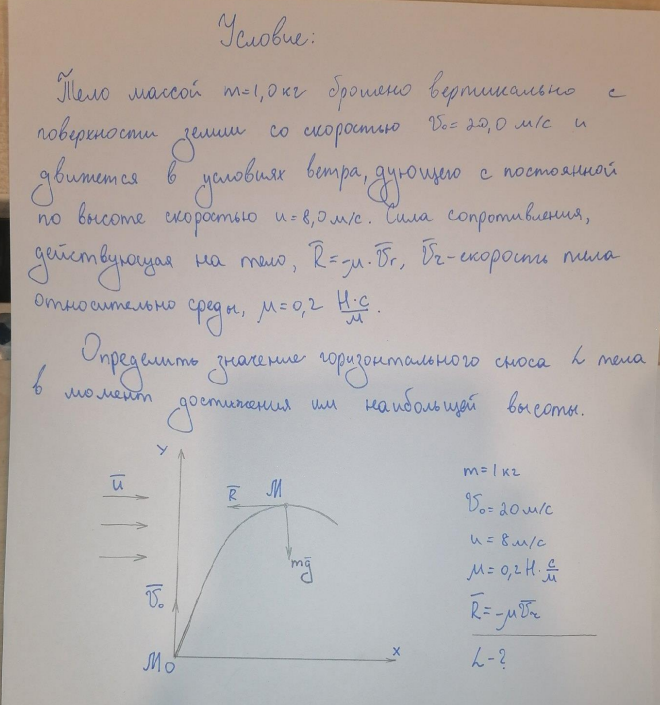 Условие:
Тело массой m=1,0 кг брошено вертикально с
поверхности земли со скоростью V₀=20,0 м/с и
движется в условиях ветра, дующего с постоянной
по высоте скоростью u=8,0 м/с. Сила сопротивления,
действующая на тело, R̅=-μ·V̅r, V̅r-скорость тела
относительно среды, μ=0,2 Н·с/м.
Определить значение горизонтального сноса L тела
в момент достижения им наибольшей высоты.
y
u̅
R̅
M
mg̅
V̅₀
M₀
x
m=1 кг
V₀=20 м/с
u=8 м/с
μ=0,2 Н·с/м
R̅=-μV̅r
L-?